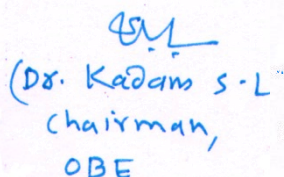 (Dr. Kadam S-L
Chairman,
OBE